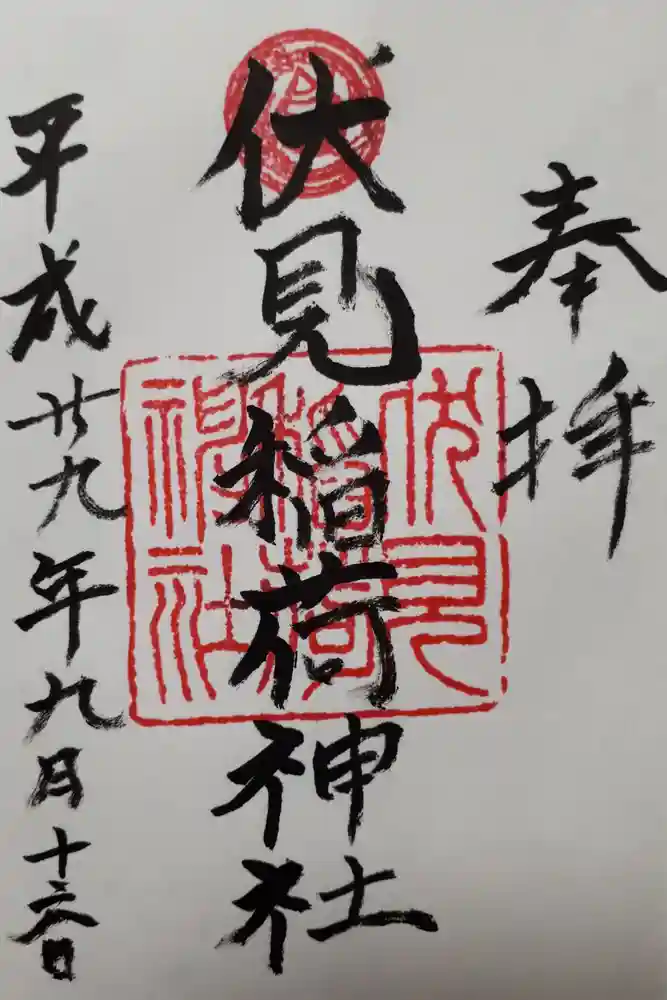 奉拝
伏見稲荷神社
伏見
稲荷
神社
平成廿九年九月十六日